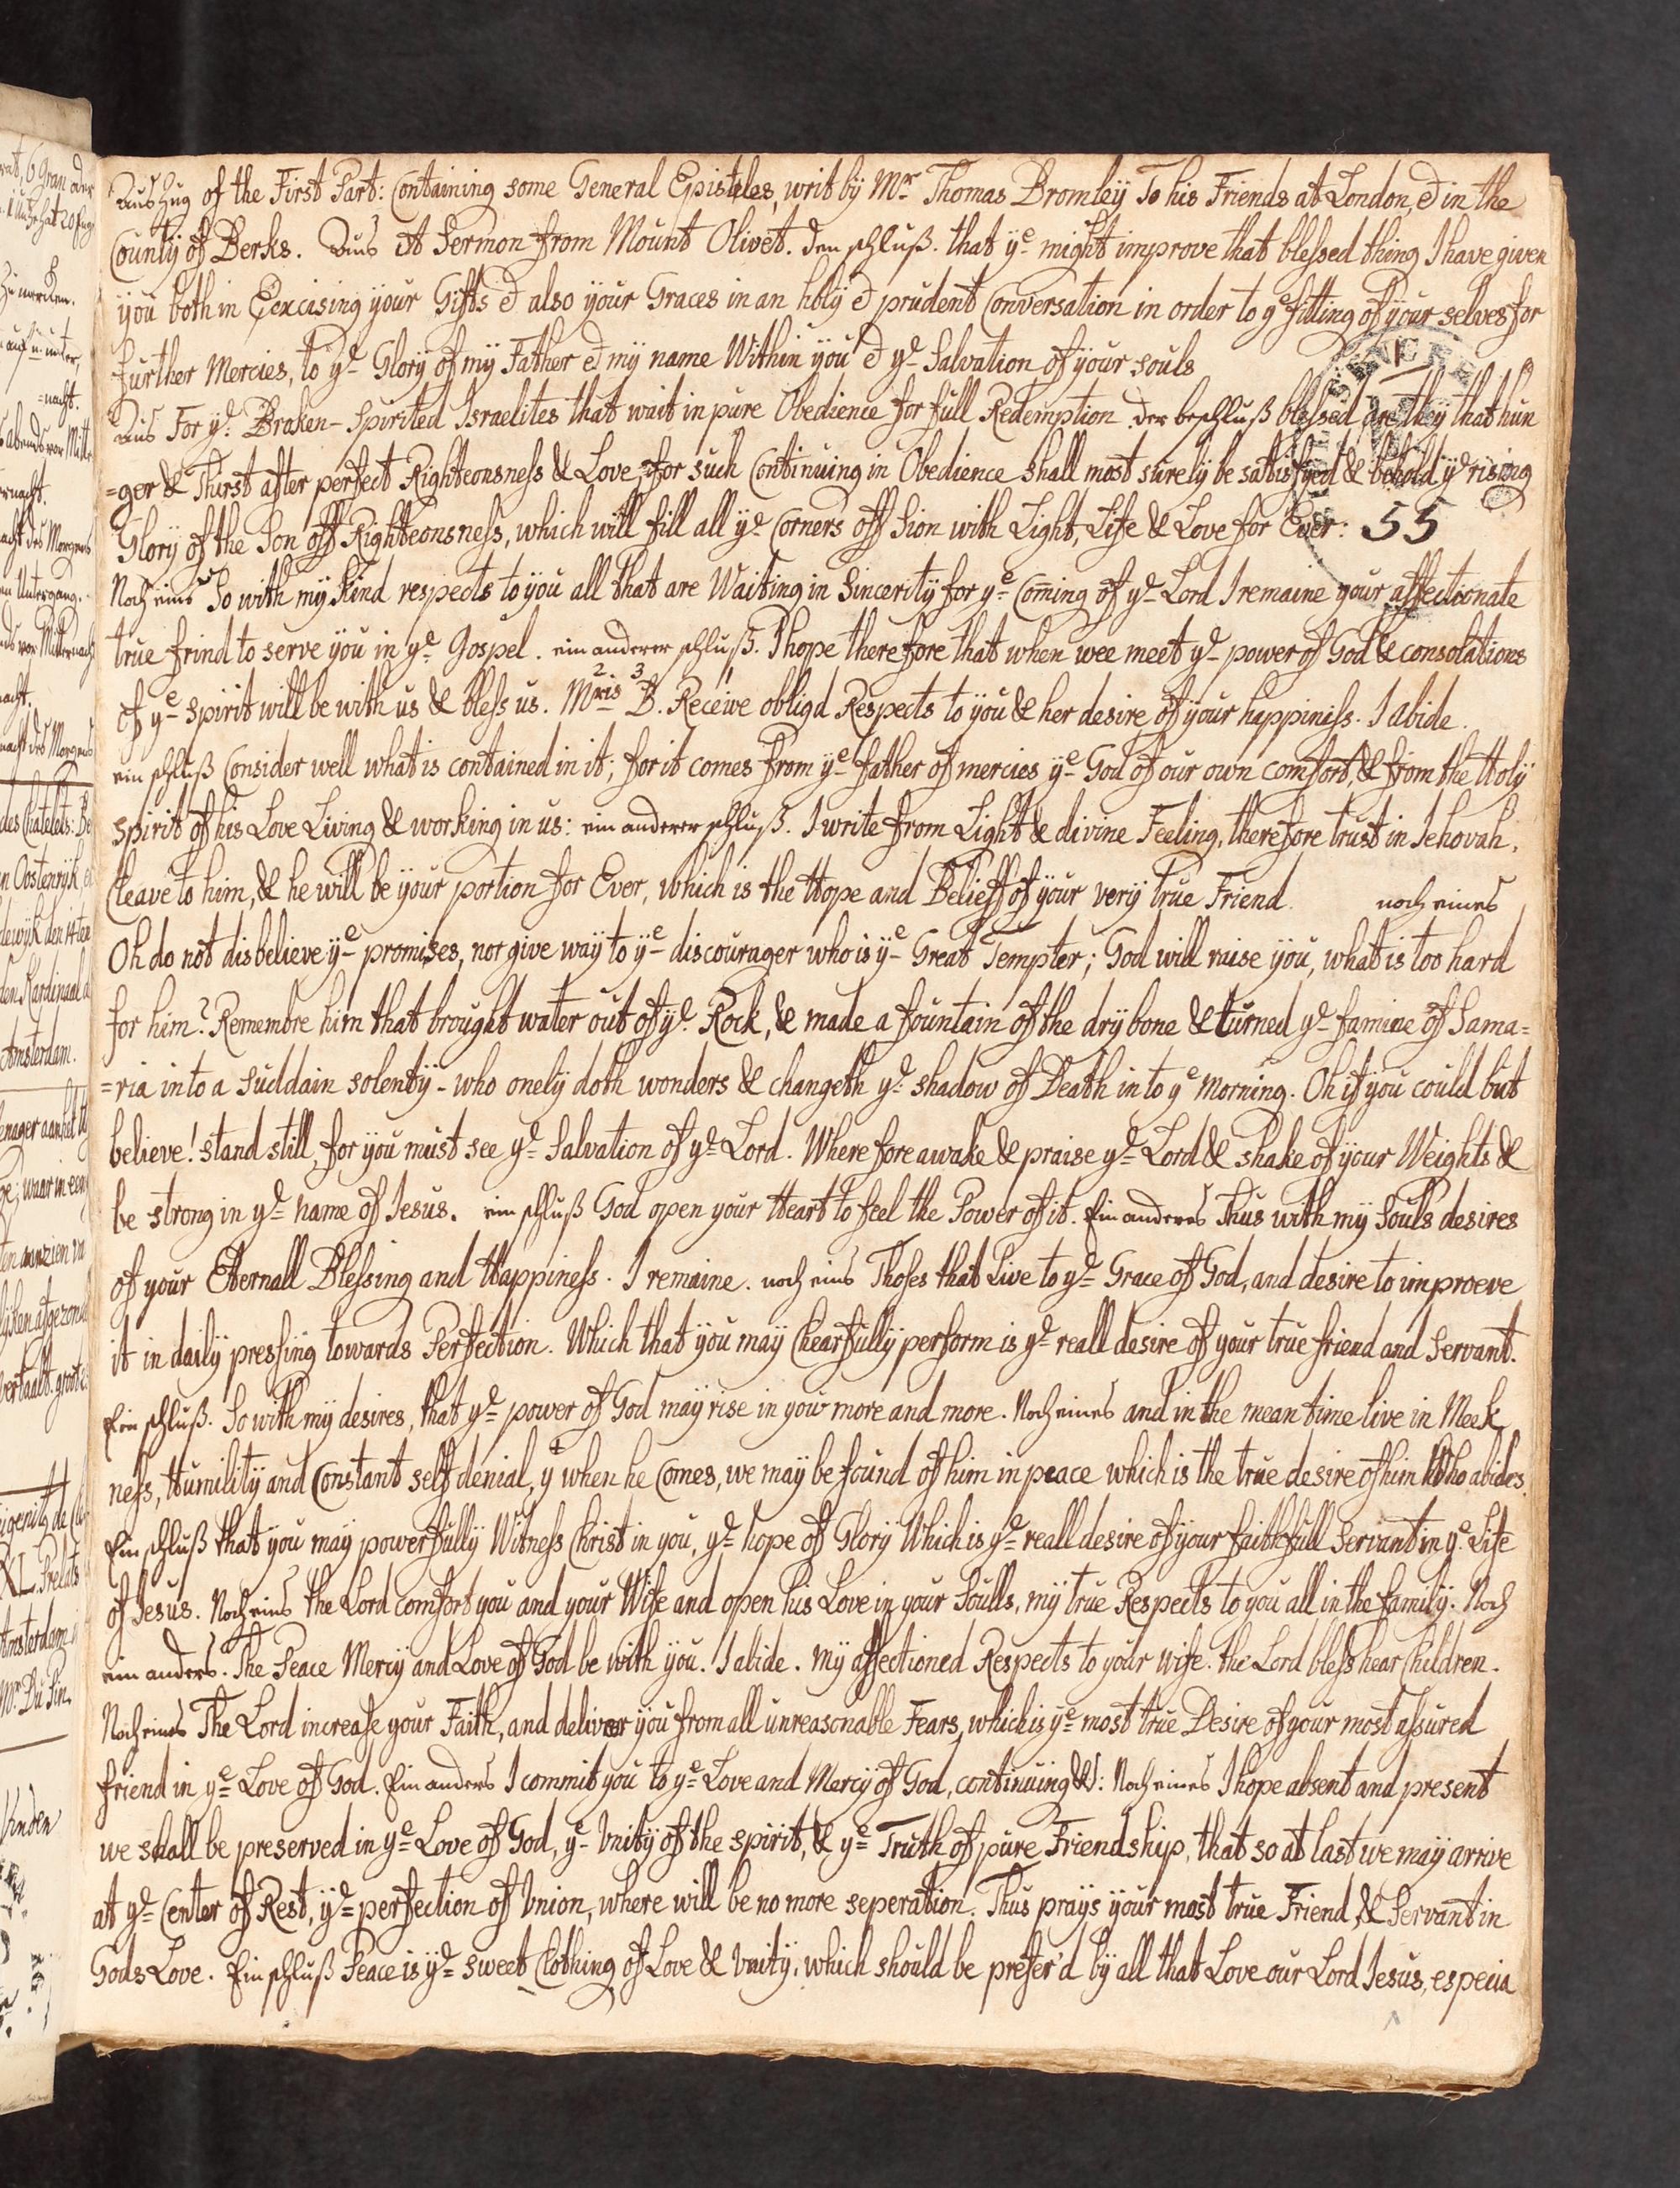 Auszug of the First Part: Containing some General Episteles, writ by Mr Thomas Bromleÿ To his Friends at London, & in the
Countÿ of Berks. Aus A Sermon from Mount Olivet. den schluß. that ye might improve that blessed thing I have given
ÿou both in Eexcising ÿour Gifts & also ÿour Graces in an holÿ & prudent Conversation in order to ye fitting of ÿour selves for
further Mercies, to ye Glorÿ of mÿ Father & mÿ name Within ÿou & ye Salvation of ÿour souls
Aus For ye Braken-Spirited Israelites that wait in pure Obedience for full Redemption. Der beschluß blessed are theÿ that hun
=ger & Thirst after perfect Righteonsness & Love, for such Continuing in Obedience shall most surelÿ be satisfÿed & behold ye rising
Glorÿ of the Son off Righteonsness, which will fill all ye Corners off Sion with Light, Life & Love for Ever: 55
Noch eins So with mÿ kind respects to ÿou all that are Waiting in Sinceritÿ for ye Coming of ye Lord I remaine ÿour affectionate
true frind to serve ÿou in ye Gospel. ein anderer schluß. I hope therefore that when wee meet ye power of God & consolations
of ye spirit will be with us & bless us. Mris B. Receive obligd Respects to ÿou & her desire of ÿour happiniss. I abide.
ein schluß Consider well what is contained in it; for it comes from ye father of mercies ye God of our own comfort, & from the Holÿ
Spirit of his Love Living & working in us: ein anderer schluß. I write from Light & divine Feeling, therefore trust in Jehovah,
Cleave to him, & he will be ÿour portion for Ever, which is the Hope and Belieff of ÿour verÿ true Friend. noch eines
Oh do not disbelieve ye promises, nor give waÿ to ye discourager who is ye Great Tempter; God will raise ÿou, what is too hard
for him? Remembre him that brought water out of ye Rock, & made a fountain of the drÿ bone & turned ye famine of Sama=
=ria into a suddain solentÿ - who onelÿ doth wonders & changeth ye shadow of Death into ye Morning. Oh if ÿou could but
believe! stand still, for ÿou must see ye Salvation of ye Lord. Wherefore awake & praise ye Lord & shake of ÿour Weights &
be strong in ye name of Jesus. ein schluß God open ÿour Heart to feel the Power of it. Ein anderes Thus with mÿ Souls desires
of ÿour Eternall Blessing and Happiness. I remaine. noch eins Thoses that Live to ye Grace of God, and desire to improeve
it in dailÿ pressing towards Perfection. Which that ÿou maÿ Chearfullÿ perform is ye reall desire of ÿour true friend and Servant.
Ein schluß. So with mÿ desires, that ye power of God maÿ rise in ÿou more and more. Noch eines and in the mean time live in Meek
ness, Humilitÿ and Constant self denial, yt when he Comes, we maÿ be found of him in peace which is the true desire of him Who abides.
Ein schluß that ÿou maÿ powerfullÿ Witness Christ in ÿou, ye hope of Glorÿ Which is ye reall desire of ÿour faithfull Servant in ye Life
of Jesus. Noch eins the Lord comfort ÿou and ÿour Wife and open his Love in ÿour Soulls, mÿ true Respects to ÿou all in the familÿ. Noch
ein anders. The Peace Mercÿ and Love of God be with ÿou. I abide. mÿ affectioned Respects to ÿour wife. the Lord bless hear Children.
Noch eines The Lord increase ÿour Faith, and deliver ÿou from all unreasonable Fears, which is ye most true Desire of ÿour most assured
friend in ye Love of God. Ein anders I commit ÿou to ye Love and Mercÿ of God, continuing &: Noch eines I hope absent and present
we shall be preserved in ye Love of God, ye Unitÿ of the spirit, & ye Truth of pure Friendship, that so at last we maÿ arrive
at ye Center of Rest, ye perfection of Union, where will be no more seperation. Thus praÿs ÿour most true Friend, & Servant in
Gods Love. Ein schluß Peace is ye sweet Clothing of Love & Unitÿ, which should be prefer'd bÿ all that Love our Lord Jesus, especia